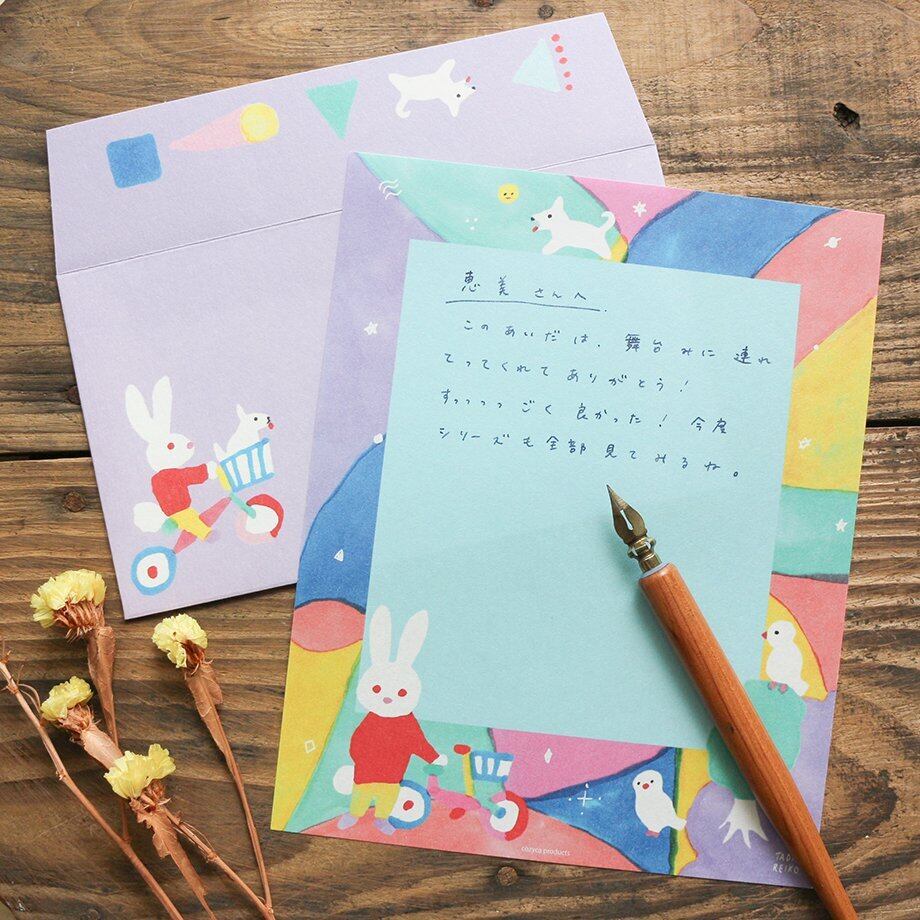 恵美さんへ.
このあいだは、舞台みに連れ
てってくれてありがとう!
すっっっっごく良かった!今度
シリーズも全部見てみるね。
cozyca products
REIKO